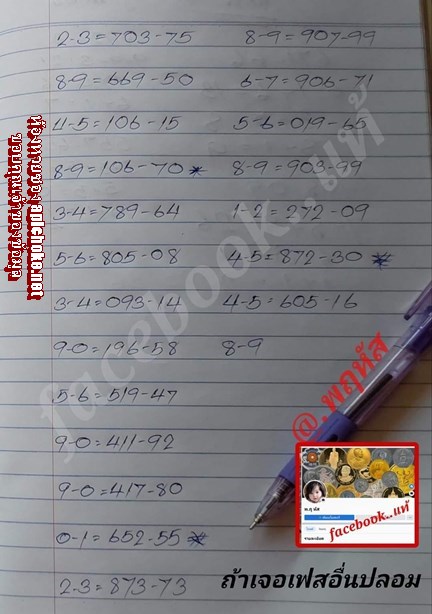 2-3=703-75
8-9=669-50
4-5=106-15
8-9=106-70*
3-4=789-64
5-6=805-08
3-4=093-14
9-0=196-58
5-6=519-47
9-0=411-92
9-0=417-80
0-1=652-55*
2-3=873-73
8-9=907-99
6-7=906-71
5-6=019-65
8-9=903-99
1-2=272-09
4-5=872-30*
4-5=605-16
8-9
facebook..แท้
@.พฤหัส
facebook..แท้
ถ้าเจอเฟสอื่นปลอม